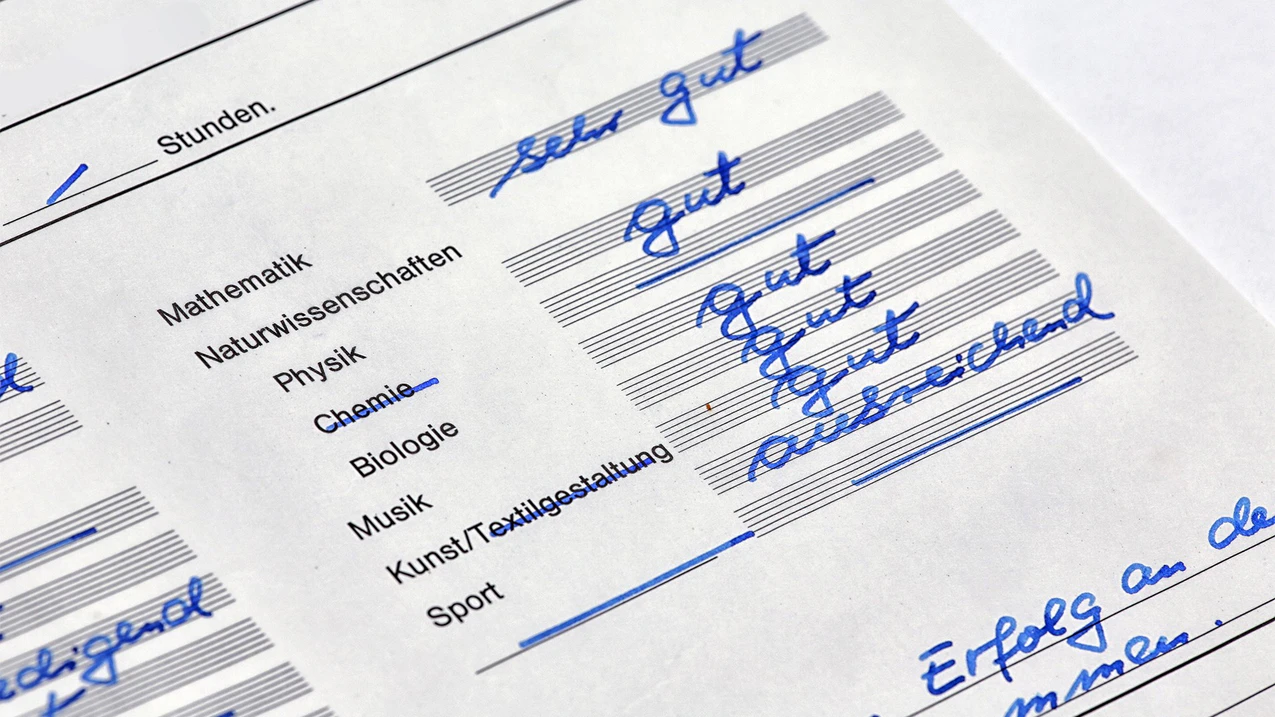 Stunden.
Mathematik sehr gut
Naturwissenschaften gut
Physik
Chemie gut
Biologie gut
Musik gut
Kunst/Textilgestaltung ausreichend
Sport
edigend
Erfolg an de
mmen.